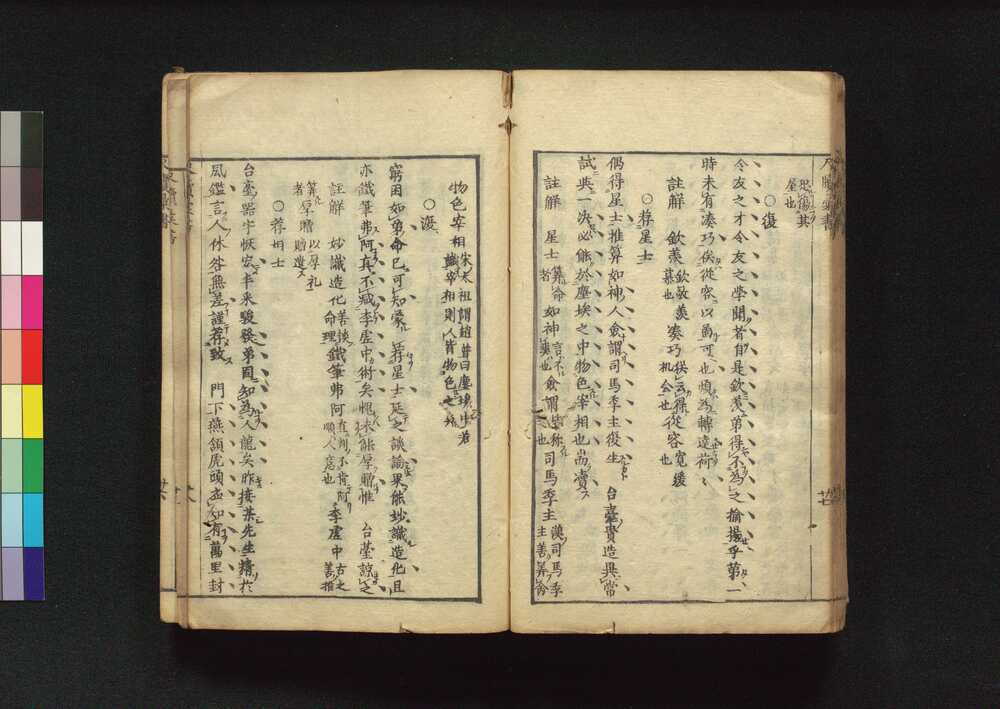 恐傷其
屋也
○復
令友之才令友之學聞者自是欽羨弟得不為之揄揚乎第一
時未有湊巧俟從容以爲可也煩為轉達荷々
註解 欽羨 欽敬羨慕也 湊巧 機会也 從容 寛緩也
○荐星士
偶得星士推算如神人僉謂司馬季主復生 台臺貴造異常
試典一次必能於塵埃之中物色宰相也耑賣
註解 星士 算命者 如神 言不異也 僉謂 皆称也 司馬季主 漢司馬季主善算命
物色宰相 宋太祖謂趙普曰塵埃中若識宰相則人皆物色之矣
○復
窮困如弟命已可知蒙 荐星士延之談論果能妙識造化且
亦識筆弗阿真不减李虚中術矣愧未能厚贈惟 台臺諒之
註解 妙識造化 善談命理 鐵筆弗阿 直判不肯阿順人意也 李虚中 古之善推算者 厚贈 以厚礼贈送
○荐相士
台臺器宇恢宏丰采駿發弟固知為人龍矣昨接某先生精於
風鑑言人休咎無差謹荐致 門下燕頷虎頭亦知有萬里封